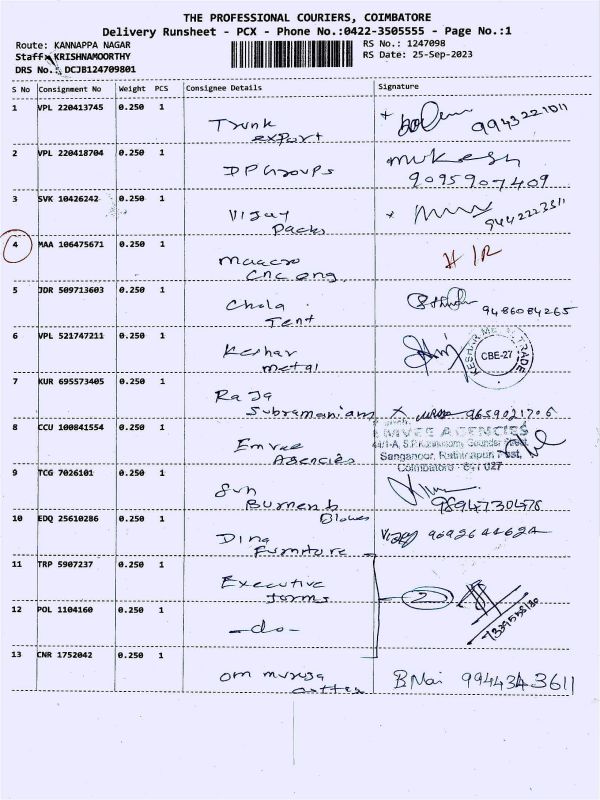 THE PROFESSIONAL COURIERS, COIMBATORE
Delivery Runsheet - PCX - Phone No.:0422-3505555 - Page No.:1
Route: KANNAPPA NAGAR RS No.: 1247098
Staff: KRISHNAMOORTHY RS Date: 25-Sep-2023
DRS No.: DCJB124709801
S No Consignment No Weight PCS Consignee Details Signature
1 VPL 220413745 0.250 1
Trunk
export
2 VPL 220418704 0.250 1 mukesh
DPGroups 9095907409
3 SVK 10426242 0.250 1
Vijay
Packs
4 MAA 106475671 0.250 1
H/R
cnc eng.
5 JDR 509713603 0.250 1
Chola
Tent 9486084265
6 VPL 521747211 0.250 1
Keshar CBE-27
metal
7 KUR 695573405 0.250 1
Raja
Subramaniam 9659021706
8 CCU 100841554 0.250 1
EMVEE AGENCIES
Emvee
Agencies Coimbatore - 641 027
9 TCG 7026101 0.250 1
Sun
10 EDQ 25610286 0.250 1
Dina
Furniture
11 TRP 5907237 0.250 1
Executive
2
12 POL 1104160 0.250 1
-do-
13 CNR 1752042 0.250 1
om muruga 9944343611